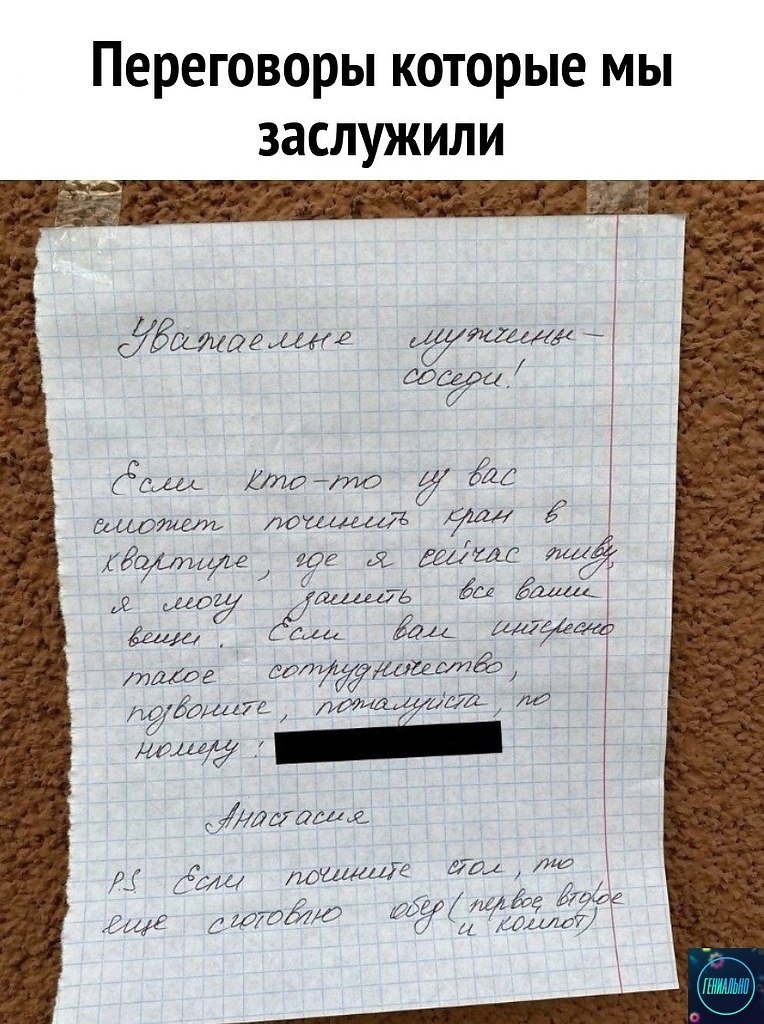 Переговоры которые мы
заслужили
Уважаемые мужчины-
соседи!
Если кто-то из вас
сможет починить кран в
квартире, где я сейчас живу,
я могу зашить все ваши
вещи. Если вам интересно
такое сотрудничество,
позвоните, пожалуйста, по
номеру:
Анастасия
P.S Если почините стол, то
еще сготовлю обед (первое, второе
и компот)
ГЕНИАЛЬНО